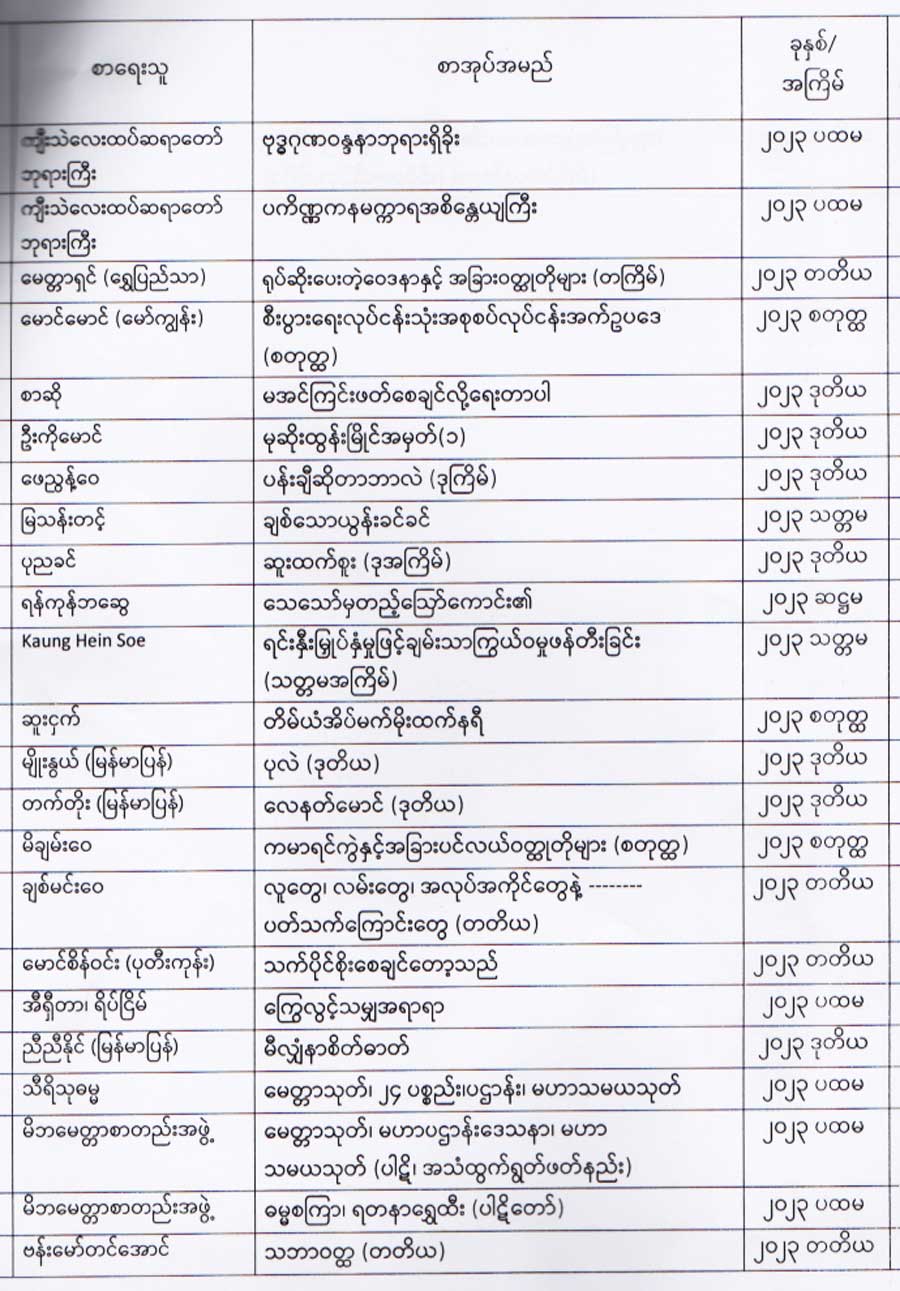 စာရေးသူ စာအုပ်အမည် ခုနှစ်/
အကြိမ်
ကျီးသဲလေးထပ်ဆရာတော် ဗုဒ္ဓဂုဏဝန္ဒနာဘုရားရှိခိုး ၂၀၂၃ ပထမ
ဘုရားကြီး
ကျီးသဲလေးထပ်ဆရာတော် ပကိဏ္ဏကနမက္ကာရအစိန္တေယျကြီး ၂၀၂၃ ပထမ
ဘုရားကြီး
မေတ္တာရှင် (ရွှေပြည်သာ) ရုပ်ဆိုးပေးတဲ့ဝေဒနာနှင့် အခြားဝတ္ထုတိုများ (တကြိမ်) ၂၀၂၃ တတိယ
မောင်မောင် (မော်ကျွန်း) စီးပွားရေးလုပ်ငန်းသုံးအစုစပ်လုပ်ငန်းအက်ဥပဒေ ၂၀၂၃ စတုတ္ထ
(စတုတ္ထ)
စာဆို မအင်ကြင်းဖတ်စေချင်လို့ရေးတာပါ ၂၀၂၃ ဒုတိယ
ဦးကိုမောင် မုဆိုးထွန်းမြိုင်အမှတ်(၁) ၂၀၂၃ ဒုတိယ
ဖေညွန့်ဝေ ပန်းချီဆိုတာဘာလဲ (ဒုကြိမ်) ၂၀၂၃ ဒုတိယ
မြသန်းတင့် ချစ်သောယွန်းခင်ခင် ၂၀၂၃ သတ္တမ
ပုညခင် ဆူးထက်စူး (ဒုအကြိမ်) ၂၀၂၃ ဒုတိယ
ရန်ကုန်ဘဆွေ သေသော်မှတည့်ဩော်ကောင်း၏ ၂၀၂၃ ဆဋ္ဌမ
Kaung Hein Soe ရင်းနှီးမြှုပ်နှံမှုဖြင့်ချမ်းသာကြွယ်ဝမှုဖန်တီးခြင်း ၂၀၂၃ သတ္တမ
(သတ္တမအကြိမ်)
ဆူးငှက် တိမ်ယံအိပ်မက်မိုးထက်နရီ ၂၀၂၃ စတုတ္ထ
မျိုးနွယ် (မြန်မာပြန်) ပုလဲ (ဒုတိယ) ၂၀၂၃ ဒုတိယ
တက်တိုး (မြန်မာပြန်) လေနတ်မောင် (ဒုတိယ) ၂၀၂၃ ဒုတိယ
မိချမ်းဝေ ကမာရင်ကွဲနှင့်အခြားပင်လယ်ဝတ္ထုတိုများ (စတုတ္ထ) ၂၀၂၃ စတုတ္ထ
ချစ်မင်းဝေ လူတွေ၊ လမ်းတွေ၊ အလုပ်အကိုင်တွေနဲ့ -------- ၂၀၂၃ တတိယ
ပတ်သက်ကြောင်းတွေ (တတိယ)
မောင်စိန်ဝင်း (ပုတီးကုန်း) သက်ပိုင်စိုးစေချင်တော့သည် ၂၀၂၃ တတိယ
အီရှီတာ၊ ရိပ်ငြိမ် ကြွေလွင့်သမျှအရာရာ ၂၀၂၃ ပထမ
ညီညီနိုင် (မြန်မာပြန်) မီလျှံနာစိတ်ဓာတ် ၂၀၂၃ ဒုတိယ
သီရိသုဓမ္မ မေတ္တာသုတ်၊ ၂၄ ပစ္စည်း၊ပဋ္ဌာန်း၊ မဟာသမယသုတ် ၂၀၂၃ ပထမ
မိဘမေတ္တာစာတည်းအဖွဲ့ မေတ္တာသုတ်၊ မဟာပဋ္ဌာန်းဒေသနာ၊ မဟာ ၂၀၂၃ ပထမ
သမယသုတ် (ပါဠိ၊ အသံထွက်ရွတ်ဖတ်နည်း)
မိဘမေတ္တာစာတည်းအဖွဲ့ ဓမ္မစကြာ၊ ရတနာရွှေထီး (ပါဠိတော်) ၂၀၂၃ ပထမ
ဗန်းမော်တင်အောင် သဘာဝတ္ထ (တတိယ) ၂၀၂၃ တတိယ